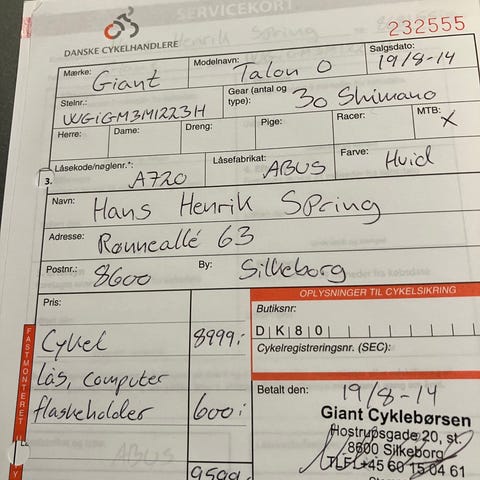 SERVICEKORT
232555
DANSKE CYKELHANDLERE
Mærke: Giant Modelnavn: Talon 0 Salgsdato: 19/8-14
Stelnr.: WGIGM3M1223H Gear (antal og type): 30 Shimano
Herre: Dame: Dreng: Pige: Racer: MTB: X
3. Låsekode/nøglenr.*: A720 Låsefabrikat: ABUS Farve: Hvid
Navn: Hans Henrik Spring
Adresse: Rønneallé 63
Postnr.: 8600 By: Silkeborg
Pris:
OPLYSNINGER TIL CYKELSIKRING
Butiksnr:
DK80
Cykel 8999,-
Cykelregistreringsnr. (SEC):
lås, computer
flaskeholder 600,-
Betalt den: 19/8-14
Giant Cyklebørsen
Hostrupsgade 20, st.
8600 Silkeborg
TLF.+45 60 15 04 61
9599
FASTMONTERET
ABUS